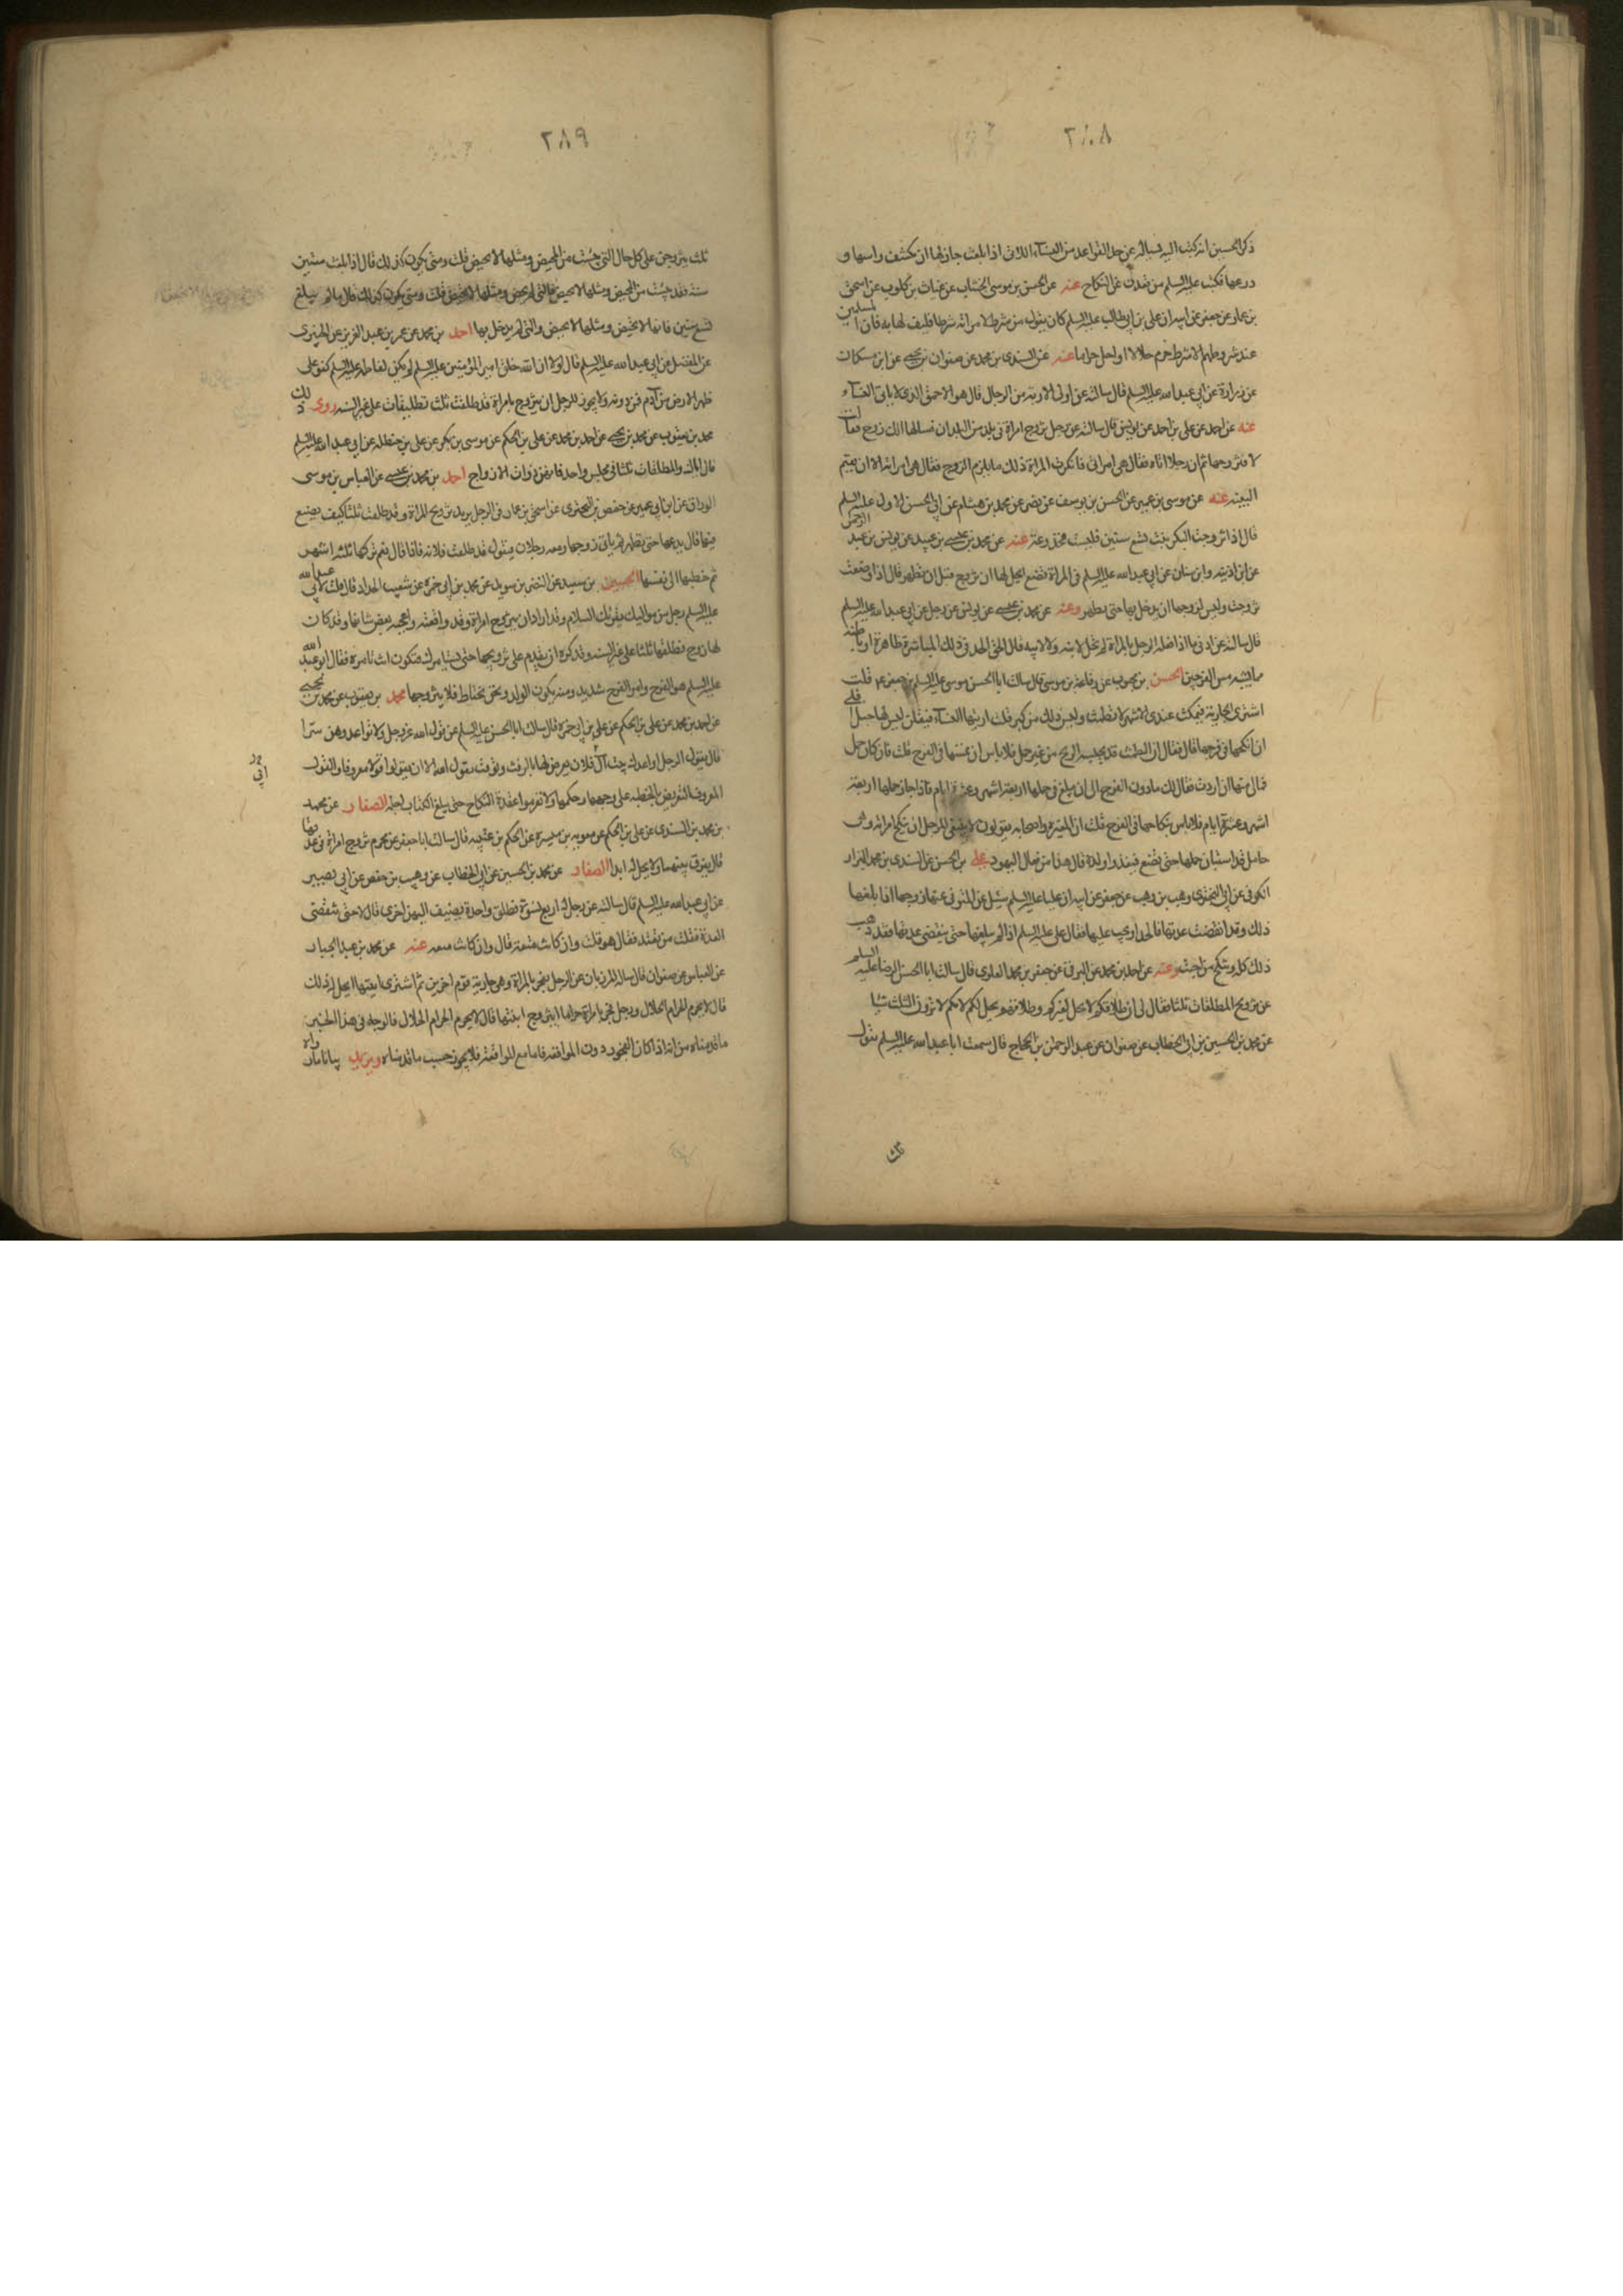 ٢٨٨
ذكر الحسين انه كتب اليه يساله عن حد القواعد من النساء اللاتى اذا بلغت جاز لها ان تكشف راسها و
درعها فكتب عليه السلم من قعدن عن النكاح عنه عن الحسن بن موسى الخشاب عن غياث بن كلوب عن اسحق
بن عمار عن جعفر عن ابيه ان على بن ابي طالب عليه السلم كان يقول من شرط لامراته شرطا فليف لها به فان المسلمين
عند شروطهم الا شرط حرم حلالا او احل حراما عنه عن السندى بن محمد عن صفوان بن يحيى عن ابن مسكان
عن زرارة عن ابي عبد الله عليه السلم قال سالته عن اولى الاربة من الرجال قال هو الاحمق الذى لا ياتى النساء
عنه عن احمد عن على بن احمد عن يونس قال سالته عن رجل تزوج امراة فى بلد من البلدان فسالها الك زوج فقالت
لا فتزوجها ثم ان رجلا اتاه فقال هى امراتى فانكرت المراة ذلك ما يلزم الزوج فقال هى امراته الا ان يقيم
البينه عنه عن موسى بن عمير عن الحسن بن يوسف عن نصر عن محمد بن هشام عن ابي الحسن الاول عليه السلم
قال اذا تزوجت البكر بنت تسع سنين فليست مخدوعة عنه عن محمد بن عيسى بن عبيد عن يونس بن عبد الرحمن
عن ابن اذينه وابن سنان عن ابي عبد الله عليه السلم فى المراة تضع ايحل لها ان تزوج قبل ان تطهر قال اذا وضعت
تزوجت وليس لزوجها ان يدخل بها حتى تطهر وعنه عن محمد بن عيسى عن يونس عن رجل عن ابي عبد الله عليه السلم
قال سالته عن ادنى ما اذا فعله الرجل بالمراة لم تحل لابنه ولا لابيه قال الحد فى ذلك المباشرة ظاهرة او باطنه
مما يشبه مس الفرجين الحسن بن محبوب عن رفاعة بن موسى قال سالت ابا الحسن موسى عليه السلم بن جعفر عم قلت
اشترى الجارية فتمكث عندى الاشهر لا تطمث وليس ذلك من كبر قلت اريتها النساء فيقلن ليس بها حبل افلى
ان انكحها فى فرجها قال فقال ان الطمث قد يحبسه الريح من غير حبل فلا باس ان تمسها فى الفرج قلت فان كان حبل
فمالى منها ان اردت فقال لك ما دون الفرج الى ان يبلغ فى حبلها اربعة اشهر وعشرة ايام فاذا جاز حملها اربعة
اشهر وعشرة ايام فلا باس بنكاحها فى الفرج قلت ان المغيرة واصحابه يقولون لا ينبغى للرجل ان ينكح امراته وهى
حامل قد استبان حملها حتى تضع فيغذوا ولده قال هذا من فعال اليهود على بن الحسن عن السندى بن محمد البزاز
الكوفى عن ابي البخترى وهب بن وهب عن جعفر عن ابيه ان عليا عليه السلم سئل عن المتوفى عنها زوجها اذا بلغها
ذلك وقد انقضت عدتها فالحداد يجب عليها فقال على عليه السلم اذا لم يبلغها حتى تنقضى عدتها فقد ذهب
ذلك كله وتنكح من احبت وعنه عن احمد بن محمد عن البرقى عن جعفر بن محمد العلوى قال سالت ابا الحسن الرضا عليه السلم
عن تزويج المطلقات ثلثا فقال لى ان طلاقكم لا يحل لغيركم وطلاقهم يحل لكم لانكم لا ترون الثلث شيئا
عن محمد بن الحسين بن ابي الخطاب عن صفوان عن عبد الرحمن بن الحجاج قال سمعت ابا عبد الله عليه السلم يقول
ثلث
٢٨٩
ثلث يتزوجن على كل حال التى يئست من المحيض ومثلها لا تحيض قلت ومتى يكون كذلك قال اذا بلغت ستين
سنة فقد يئست من المحيض ومثلها لا تحيض والتى لم تحض ومثلها لا تحيض قلت ومتى يكون كذلك قال ما لم يبلغ
تسع سنين فانها لا تحيض ومثلها لا تحيض والتى لم يدخل بها احمد بن محمد عن عمر بن عبد العزيز عن الخيبرى
عن المفضل عن ابي عبد الله عليه السلم قال لولا ان الله خلق امير المؤمنين عليه السلم لم يكن لفاطمه عليه السلم كفو على
ظهر الارض من آدم فمن دونه ولا يجوز للرجل ان يتزوج بامراة قد طلقت ثلث تطليقات على غير السنه روى ذلك
محمد بن يعقوب عن محمد بن يحيى عن احمد بن محمد عن على بن الحكم عن موسى بن بكر عن على بن حنظله عن ابي عبد الله عليه السلم
قال اياك والمطلقات ثلثا فى مجلس واحد فانهن ذوات الازواج احمد بن محمد بن عيسى عن العباس بن موسى
الوراق عن ابن ابي عمير عن حفص بن البخترى عن اسحق بن عمار فى الرجل يريد تزويج المراة وقد طلقت ثلثا كيف يصنع
فيها قال يدعها حتى تطهر ثم ياتى زوجها ومعه رجلان فيقول قد طلقت فلانه فاذا قال نعم تركها ثلثه اشهر
ثم خطبها الى نفسها الحسين بن سعيد عن النضر بن سويد عن محمد بن ابي حمزة عن شعيب الحداد قال قلت لابي عبد الله
عليه السلم رجل من مواليك يقرئك السلام وقد اراد ان يتزوج امراة وقد وافقته واعجبه بعض شانها وقد كان
لها زوج فطلقها ثلثا على غير السنه وقد كره ان يقدم على تزويجها حتى يستامرك فتكون انت تامره فقال ابو عبد الله
عليه السلم هو الفرج وامر الفرج شديد ومنه يكون الولد ونحن نحتاط فلا يتزوجها محمد بن يعقوب عن محمد بن يحيى
عن احمد بن محمد عن على بن الحكم عن على بن ابي حمزة قال سالت ابا الحسن عليه السلم عن قول الله عز وجل ولا تواعدوهن سرا
قال يقول الرجل اواعدك بيت آل فلان يعرض لها بالرفث ويرفث يقول الله الا ان يقولوا قولا معروفا والقول
المعروف التعريض بالخطبه على وجهها وحكمها ولا تعزموا عقدة النكاح حتى يبلغ الكتاب اجله الصفار عن محمد
بن محمد بن السندى عن على بن الحكم عن معويه بن ميسرة عن الحكم بن عتيبه قال سالت ابا جعفر عن محرم تزوج امراة فى عدتها
قال يفرق بينهما ولا يحل له ابدا الصفار عن محمد بن الحسين عن ابي الخطاب عن وهيب بن حفص عن ابي بصير
عن ابي عبد الله عليه السلم قال سالته عن رجل له اربع نسوة فطلق واحدة يضيف اليهن اخرى قال لا حتى تنقضى
العدة فقلت من تعتد فقال هو قلت وان كانت متعة قال وان كانت متعه عنه عن محمد بن عبد الجبار
عن العباس عن صفوان قال ساله المرزبان عن الرجل يفجر بالمراة وهى جارية قوم اخرين ثم اشترى ابنتها ايحل له ذلك
قال لا يحرم الحرام الحلال ورجل فجر بامراة حراما ايتزوج ابنتها قال لا يحرم الحرام الحلال فالوجه فى هذا الخبرين
ما قدمناه من انه اذا كان الفجور دون المواقعه فاما مع المواقعة فلا يجوز حسب ما قدمناه ويزيد بيانا ما رواه